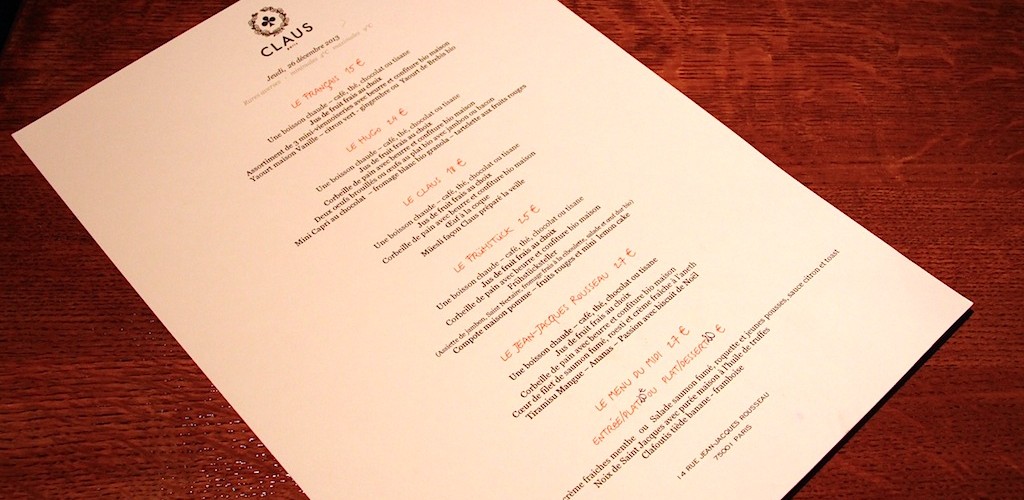 CLAUS
PARIS
Jeudi, 26 décembre 2013
LE FRANÇAIS 15 €
Une boisson chaude – café, thé, chocolat ou tisane
Jus de fruit frais au choix
Assortiment de 3 mini-viennoiseries avec beurre et confiture bio maison
Yaourt maison Vanille – citron vert - gingembre ou Yaourt de Brebis bio
LE HUGO 24 €
Une boisson chaude – café, thé, chocolat ou tisane
Jus de fruit frais au choix
Corbeille de pain avec beurre et confiture bio maison
Deux oeufs brouillés ou œufs au plat bio avec jambon ou bacon
Mini Capri au chocolat – fromage blanc bio granola – tartelette aux fruits rouges
LE CLAUS 18 €
Une boisson chaude – café, thé, chocolat ou tisane
Jus de fruit frais au choix
Corbeille de pain avec beurre et confiture bio maison
Œuf à la coque
Müesli façon Claus préparé la veille
LE FRÜHSTÜCK 25 €
Une boisson chaude – café, thé, chocolat ou tisane
Jus de fruit frais au choix
Corbeille de pain avec beurre et confiture bio maison
Frühstücksteller
(Assiette de jambon, Saint Nectaire, fromage frais à la ciboulette, salade et œuf dur bio)
Compote maison pomme – fruits rouges et mini lemon cake
LE JEAN-JACQUES ROUSSEAU 27 €
Une boisson chaude – café, thé, chocolat ou tisane
Jus de fruit frais au choix
Corbeille de pain avec beurre et confiture bio maison
Cœur de filet de saumon fumé, roesti et crème fraîche à l'aneth
Tiramisu Mangue – Ananas – Passion avec biscuit de Noël
LE MENU DU MIDI 27 €
ENTRÉE/PLAT OU PLAT/DESSERT €
crème fraîches menthe ou Salade saumon fumé, roquette et jeunes pousses, sauce citron et toast
Noix de Saint Jacques avec purée maison à l'huile de truffes
Clafoutis tiède banane – framboise
14 RUE JEAN-JACQUES ROUSSEAU
75001 PARIS